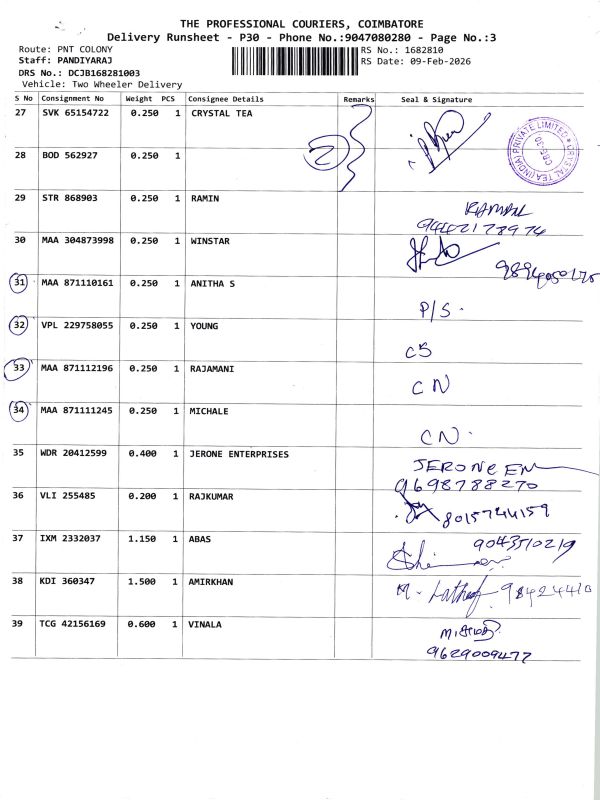 THE PROFESSIONAL COURIERS, COIMBATORE
Delivery Runsheet - P30 - Phone No.:9047080280 - Page No.:3
Route: PNT COLONY
RS No.: 1682810
Staff: PANDIYARAJ
RS Date: 09-Feb-2026
DRS No.: DCJB168281003
Vehicle: Two Wheeler Delivery
S No Consignment No Weight PCS Consignee Details Remarks Seal & Signature
27 SVK 65154722 0.250 1 CRYSTAL TEA
CRYSTAL TEA (INDIA) PRIVATE LIMITED
CBE-30
2
28 BOD 562927 0.250 1
29 STR 868903 0.250 1 RAMIN
30 MAA 304873998 0.250 1 WINSTAR
31 MAA 871110161 0.250 1 ANITHA S
P/S.
32 VPL 229758055 0.250 1 YOUNG
C5
33 MAA 871112196 0.250 1 RAJAMANI
CN
34 MAA 871111245 0.250 1 MICHALE
CN.
35 WDR 20412599 0.400 1 JERONE ENTERPRISES
JERONE EN
9698788270
36 VLI 255485 0.200 1 RAJKUMAR
8015744159
37 IXM 2332037 1.150 1 ABAS
9043510219
38 KDI 360347 1.500 1 AMIRKHAN
98424410
39 TCG 42156169 0.600 1 VINALA
9629009477